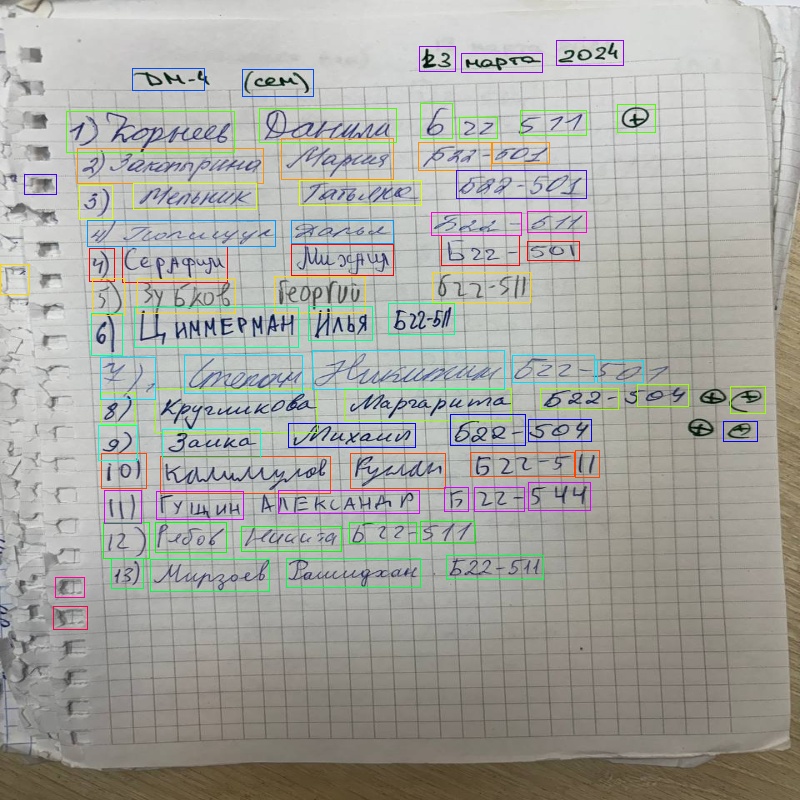 23 марта 2024
DM-4 (сем)
1) Корнеев Данила Б22 511 ⊕
2) Закатырина Мария Б22-501
3) Мельник Татьяна Б22-501
4) Полищук Дарья Б22-511
4) Серафим Михаил Б22-501
5) Зубков Георгий Б22-511
6) Циммерман Илья Б22-511
7) Степан Никитин Б22-501
8) Кругликова Маргарита Б22-504 ⊕ ⊕
9) Заика Михаил Б22-504 ⊕ ⊖
10) Калимулов Руслан Б22-511
11) Гущин Александр Б22-544
12) Рябов Никита Б22-511
13) Мирзоев Рашидхан Б22-511